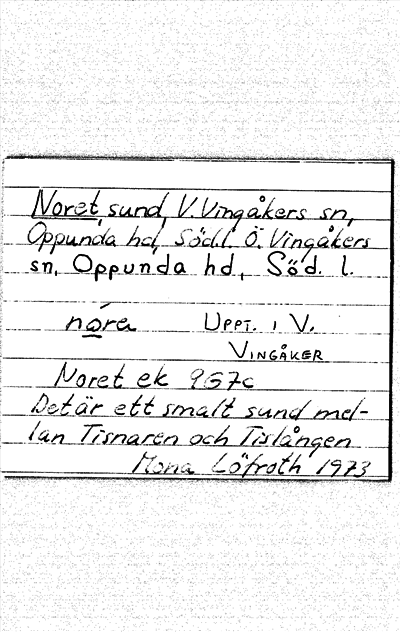 Noret, sund, V. Vingåkers sn,
Oppunda hd, Södl. Ö. Vingåkers
sn, Oppunda hd, Söd. l.
nóra Uppt. i V.
Vingåker
Noret ek 9G7c
Det är ett smalt sund mel-
lan Tisnaren och Tislången
Mona Löfroth 1973